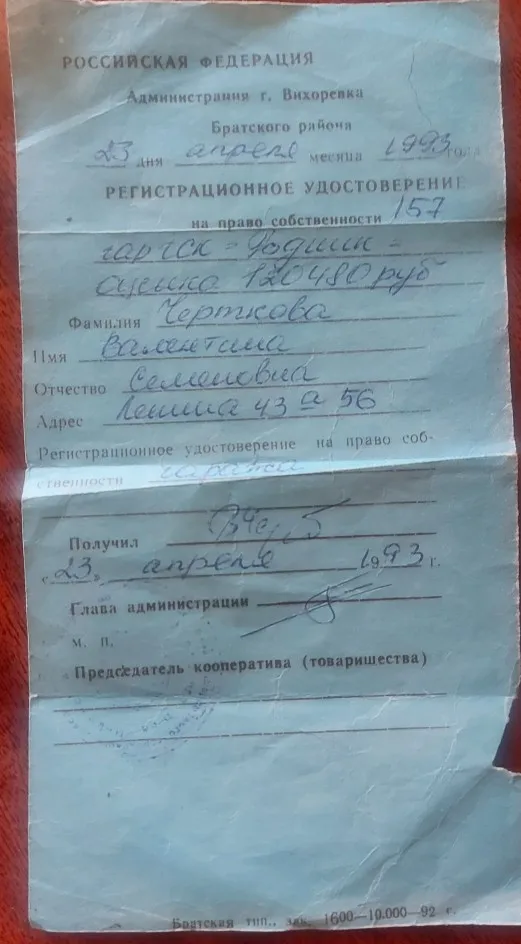 РОССИЙСКАЯ ФЕДЕРАЦИЯ
Администрация г. Вихоревка
Братского района
23 дня апреля месяца 1993 года
РЕГИСТРАЦИОННОЕ УДОСТОВЕРЕНИЕ
на право собственности 157
оценка 120480 руб
Фамилия Черткова
Имя Валентина
Отчество Семеновна
Адрес Ленина 43 а 56
Регистрационное удостоверение на право соб-
ственности гаража
Получил
«23» апреля 1993 г.
Глава администрации
м. п.
Председатель кооператива (товарищества)
Братская тип., зак. 1600—10.000—92 г.